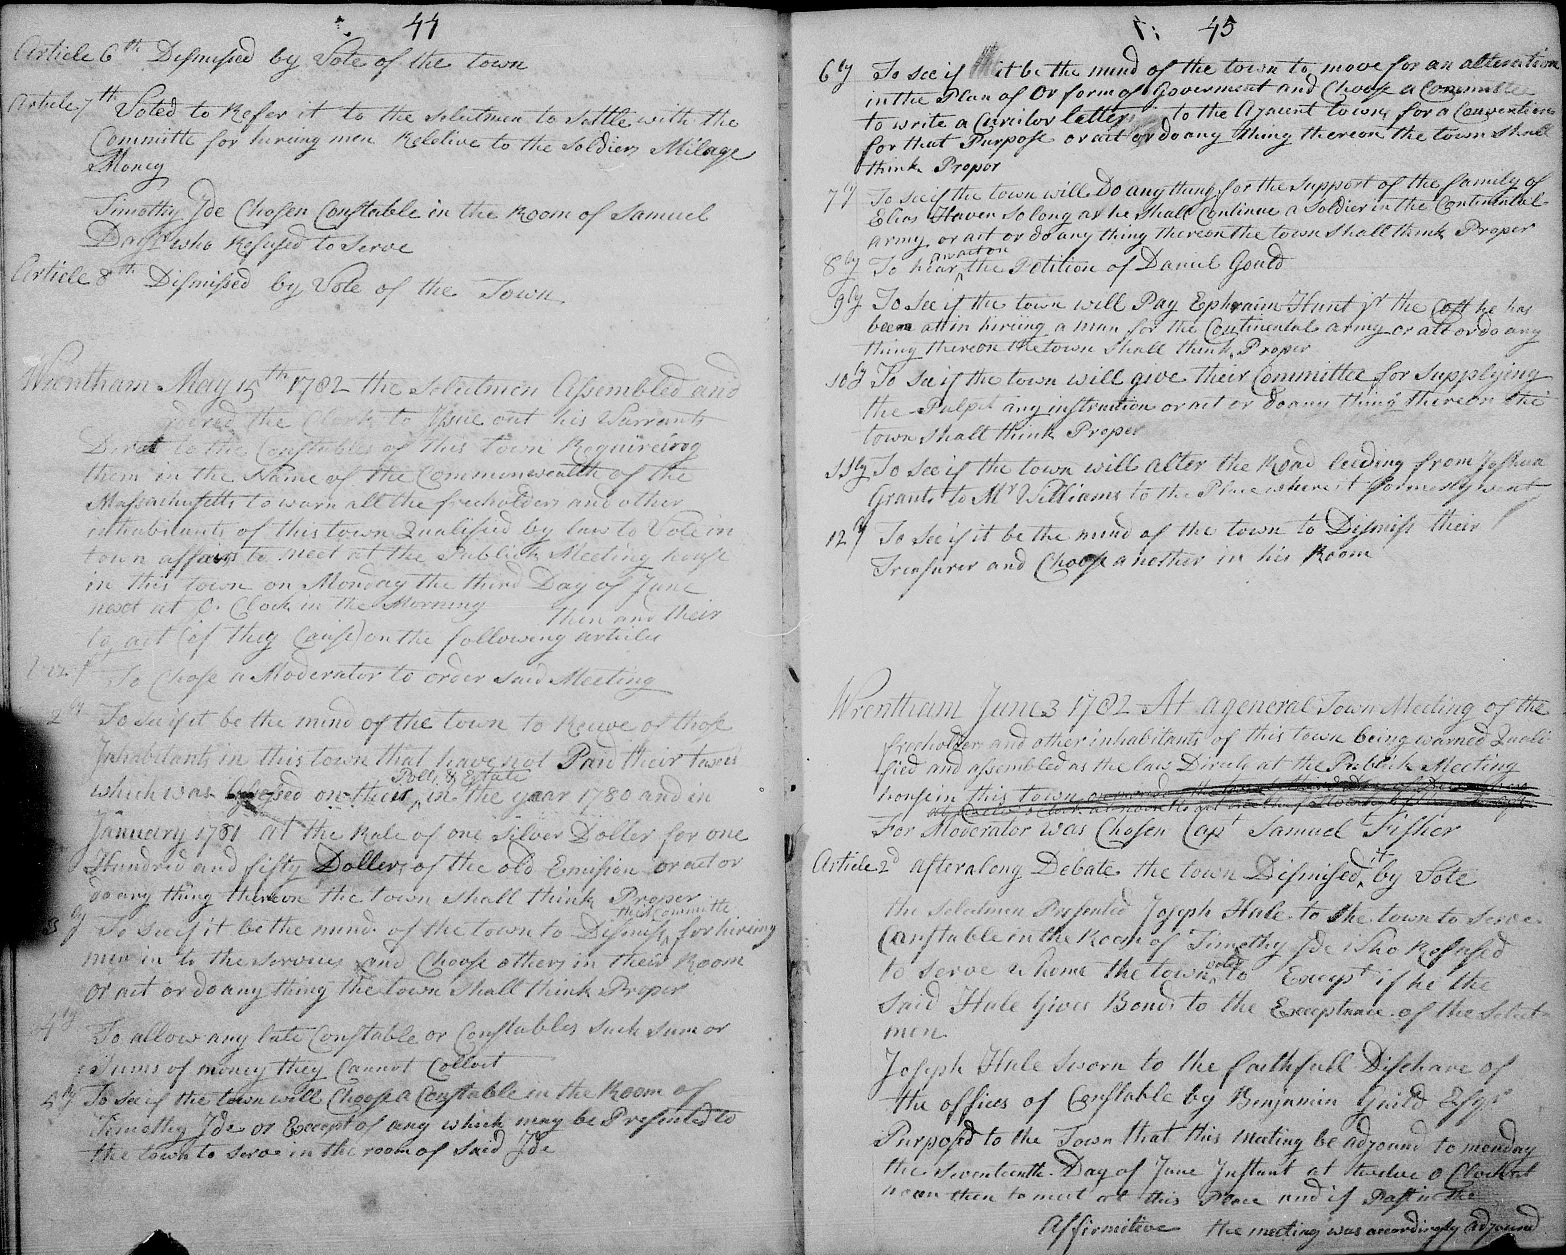 44
Article 6th Dismissed by Vote of the town
Article 7th Voted to Refer it to the Selectmen to Settle with the
Committe for hireing men Relative to the Soldiers Milage
Money
Timothy Ide Chosen Constable in the Room of Samuel
who Refused to Serve
Article 8th Dismissed by Vote of the Town
Wrentham May 15th 1782 the Selectmen Assembled and
the Clark to Issue out his Warrants
Direct to the Constables of this town Requireing
them in the Name of the Commonwealth of the
Massachusetts to warn all the freeholders and other
inhabitants of this town Qualified by law to Vote in
town affairs to meet at the Publick Meeting house
in this town on Monday the third Day of June
next at O Clock in the Morning then and their
to act (if they Cause) on the following articles
Viz To Chose a Moderator to order said Meeting
2ly To see if it be the mind of the town to Receve of those
Inhabitants in this town that have not Paid their taxes
which was assessed on their Poll & Estate in the year 1780 and in
January 1781 at the Rate of one Silver Doller for one
Hundred and fifty Dollers of the old Emision or act or
do any thing thereon the town shall think Proper
3ly To see if it be the mind of the town to Dismiss their Committe for hireing
men in to the services and Choose others in their Room
or act or do any thing the town Shall think Proper
4ly To allow any late Constable or Constables such sum or
Sums of money they Cannot Collect
4ly To see if the town will Choose a Constable in the Room of
Timothy Ide or Except of any which may be Presented to
the town to Serve in the room of Said Ide
45
6ly To see if it be the mind of the town to move for an alteration
in the Plan of Or form of Goverment and Choose a Committee
to write a Curcilor letter to the Ajacent towns for a Convention
for that Purpose or act or do any thing thereon the town Shall
think Propor
7ly To see if the town will Do any thing for the Support of the family of
Elias Haven So long as he Shall Continue a Soldier in the Continental
army or act or do any thing thereon the town Shall think Proper
8ly To hear an act on the Petition of Daniel Gould
9ly To See if the town will Pay Ephraim Hunt jr the Cost he has
been att in hireing a man for the Continental army or act or do any
thing thereon the town Shall think Proper
10ly To see if the town will give their Committee for Supplying
the Pulpit any instruction or act or do any thing thereon the
town Shall think Proper
11ly To see if the town will alter the Road leeding from Joshua
Grants to Mr Williams to the Place where it formerly went
12ly To see if it be the mind of the town to Dismiss their
Treasurer and Choose another in his Room
Wrentham June 3 1782 At a general Town Meeting of the
freeholders and other inhabitants of this town being warned Quali
fied and assembled as the law Directs at the Publick Meeting
house in this town
For Moderator was Chosen Capt Samuel Fisher
Article 2d after a long Debate the town Dismised it by Vote
the Selectmen Presented Joseph Hale to the town to Serve
Constable in the Room of Timothy Ide who Refused
to serve whome the town voted to Except if he the
Said Hale Gives Bonds to the Exceptance of the Select
men
Joseph Hale Sworn to the faithfull Dischare of
the offices of Constable by Benjamin Guild Esqr
Purposed to the Town that this meeting be adjound to monday
the Seventeenth Day of June Instant at twelve o Clock at
noon then to meet at this Place and if Past in the
Affirmitive the meeting was accordingly adjound